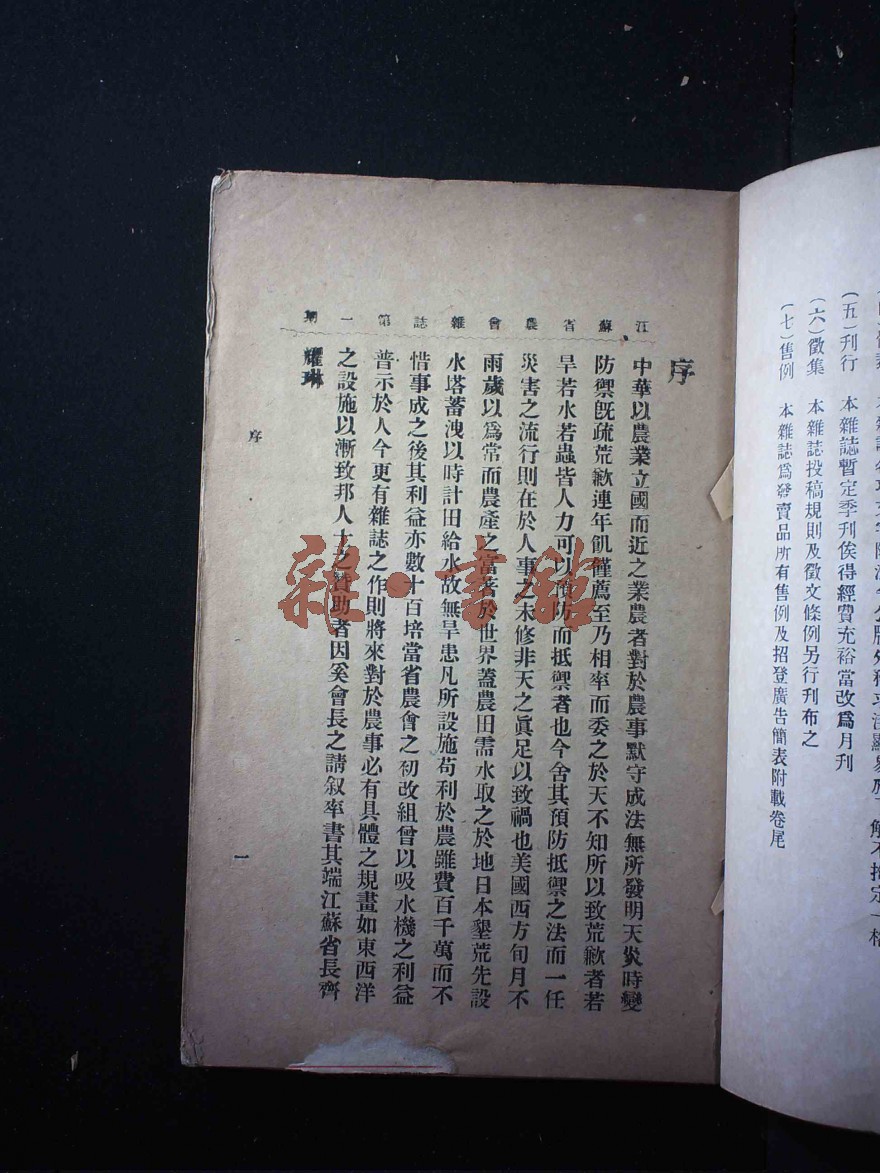 (五)刊行　本雜誌暫定季刊俟得經費充裕當改爲月刊
(六)徵集　本雜誌投稿規則及徵文條例另行刊布之
(七)售例　本雜誌爲發賣品所有售例及招登廣告簡表附載卷尾
江蘇省農會雜誌第一期
序
中華以農業立國而近之業農者對於農事默守成法無所發明天炎時變
防禦旣疏荒歉連年飢僅薦至乃相率而委之於天不知所以致荒歉者若
旱若水若蟲皆人力可以預防而抵禦者也今舍其預防抵禦之法而一任
災害之流行則在於人事之未修非天之眞足以致禍也美國西方旬月不
雨歲以爲常而農產之富著於世界蓋農田需水取之於地日本墾荒先設
水塔蓄洩以時計田給水故無旱患凡所設施苟利於農雖費百千萬而不
惜事成之後其利益亦數十百培當省農會之初改組曾以吸水機之利益
普示於人今更有雜誌之作則將來對於農事必有具體之規畫如東西洋
之設施以漸致邦人士之贊助者因奚會長之請叙率書其端江蘇省長齊
耀琳
序
一
雜·書館